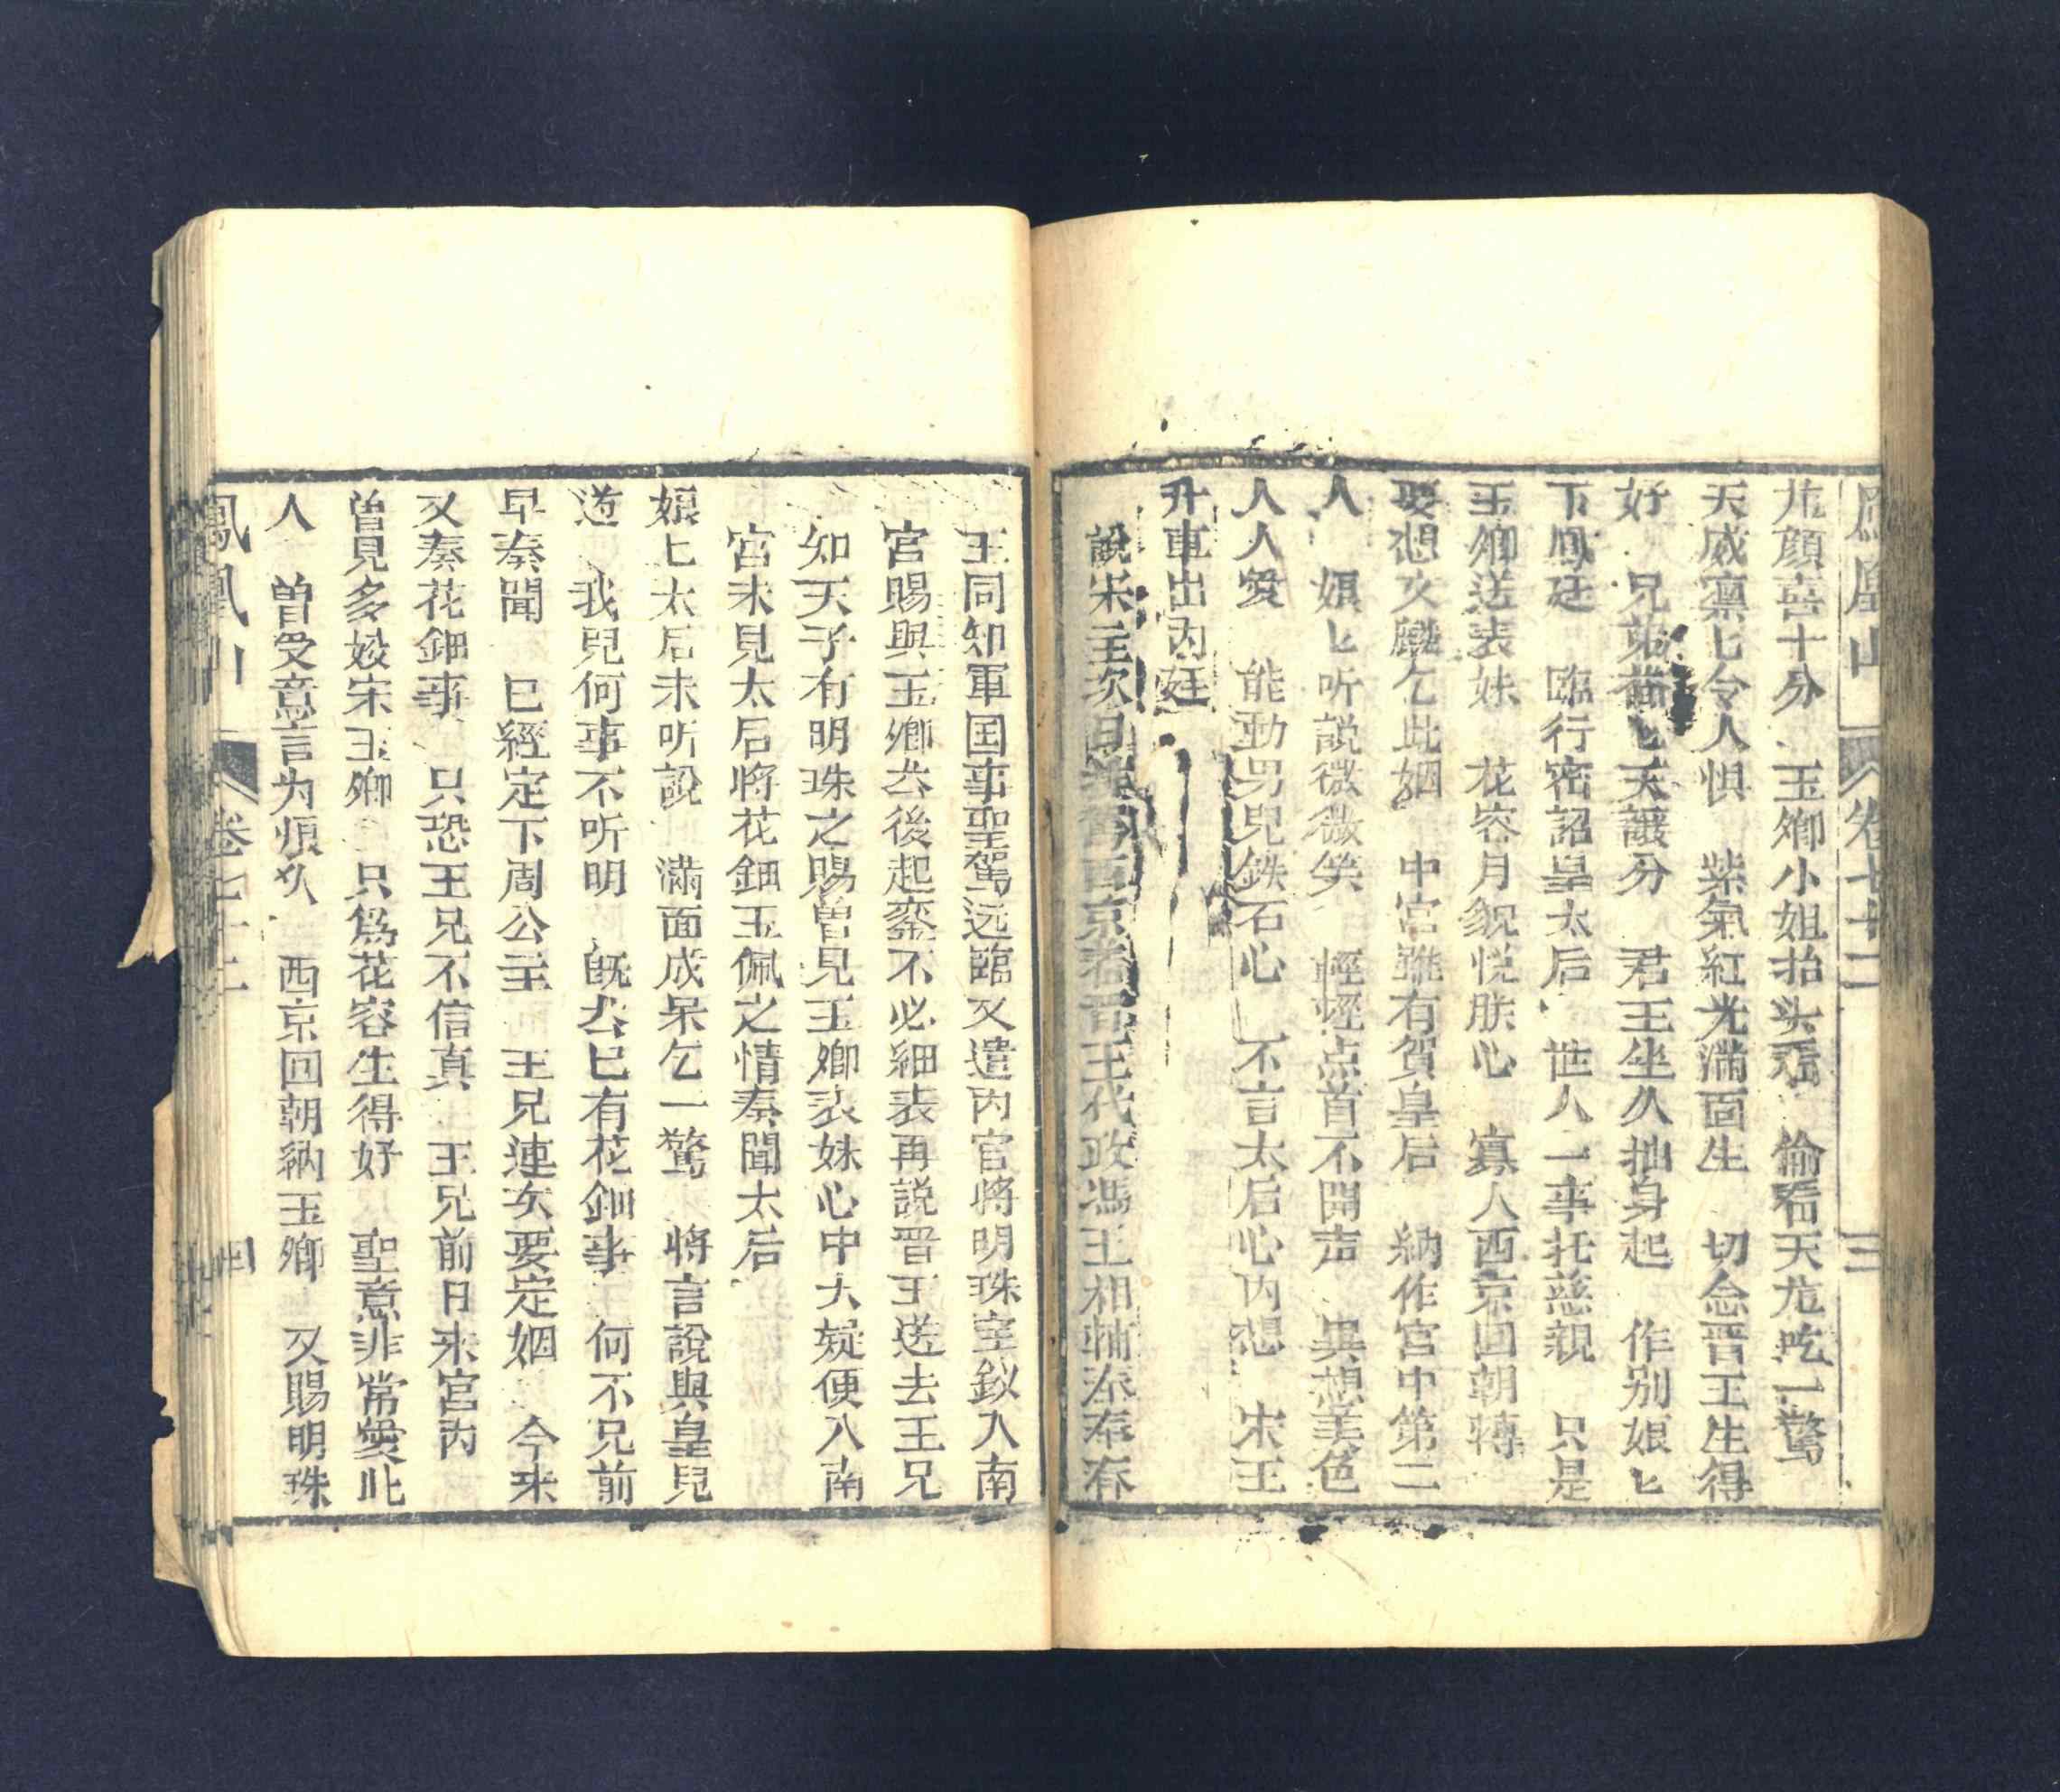 鳳凰山 卷七十二 三
尤顔喜十分 玉卿小姐抬头看 偷看天尤吃一驚
天威凛匕令人惧 紫氣紅光满面生 切念晋王生得
好 兄弟 天讓分 君王坐久抽身起 作别娘匕
下鳳廷 臨行密詔皇太后 世人一事托慈親 只是
玉卿送表妹 花容月貌悦朕心 寡人西京回朝轉
要想文 乞此姻 中宮雖有賀皇后 納作宮中第二
人 娘匕听説微微笑 輕輕点首不開声 果想美色
人人愛 能動男兒鉄石心 不言太后心内想 宋王
升車出内廷
説宋主次日 西京着晋王代政馮王相輔 奉春
王同知軍国事聖駕远臨又遣内官將明珠 入南
宮賜與玉卿去後起鑾不必細表再説晋王送去王兄
如天子有明珠之賜曽見玉卿表妹心中大疑便入南
宮未見太后將花鈿玉佩之情奏聞太后
娘匕太后未听説 满面成呆乞一驚 將言說與皇兒
道 我兒何事不听明 既去已有花鈿事 何不兄前
早奏聞 巳經定下周公主 王兄連矢要定姻 今来
又奏花鈿事 只恐王兄不信真 王兄前日来宮内
曽見多姣宋玉卿 只爲花容生得好 聖意非常愛此
人 曽受意言为煩久 西京回朝納玉卿 又賜明珠
鳳凰山 卷七十二 四